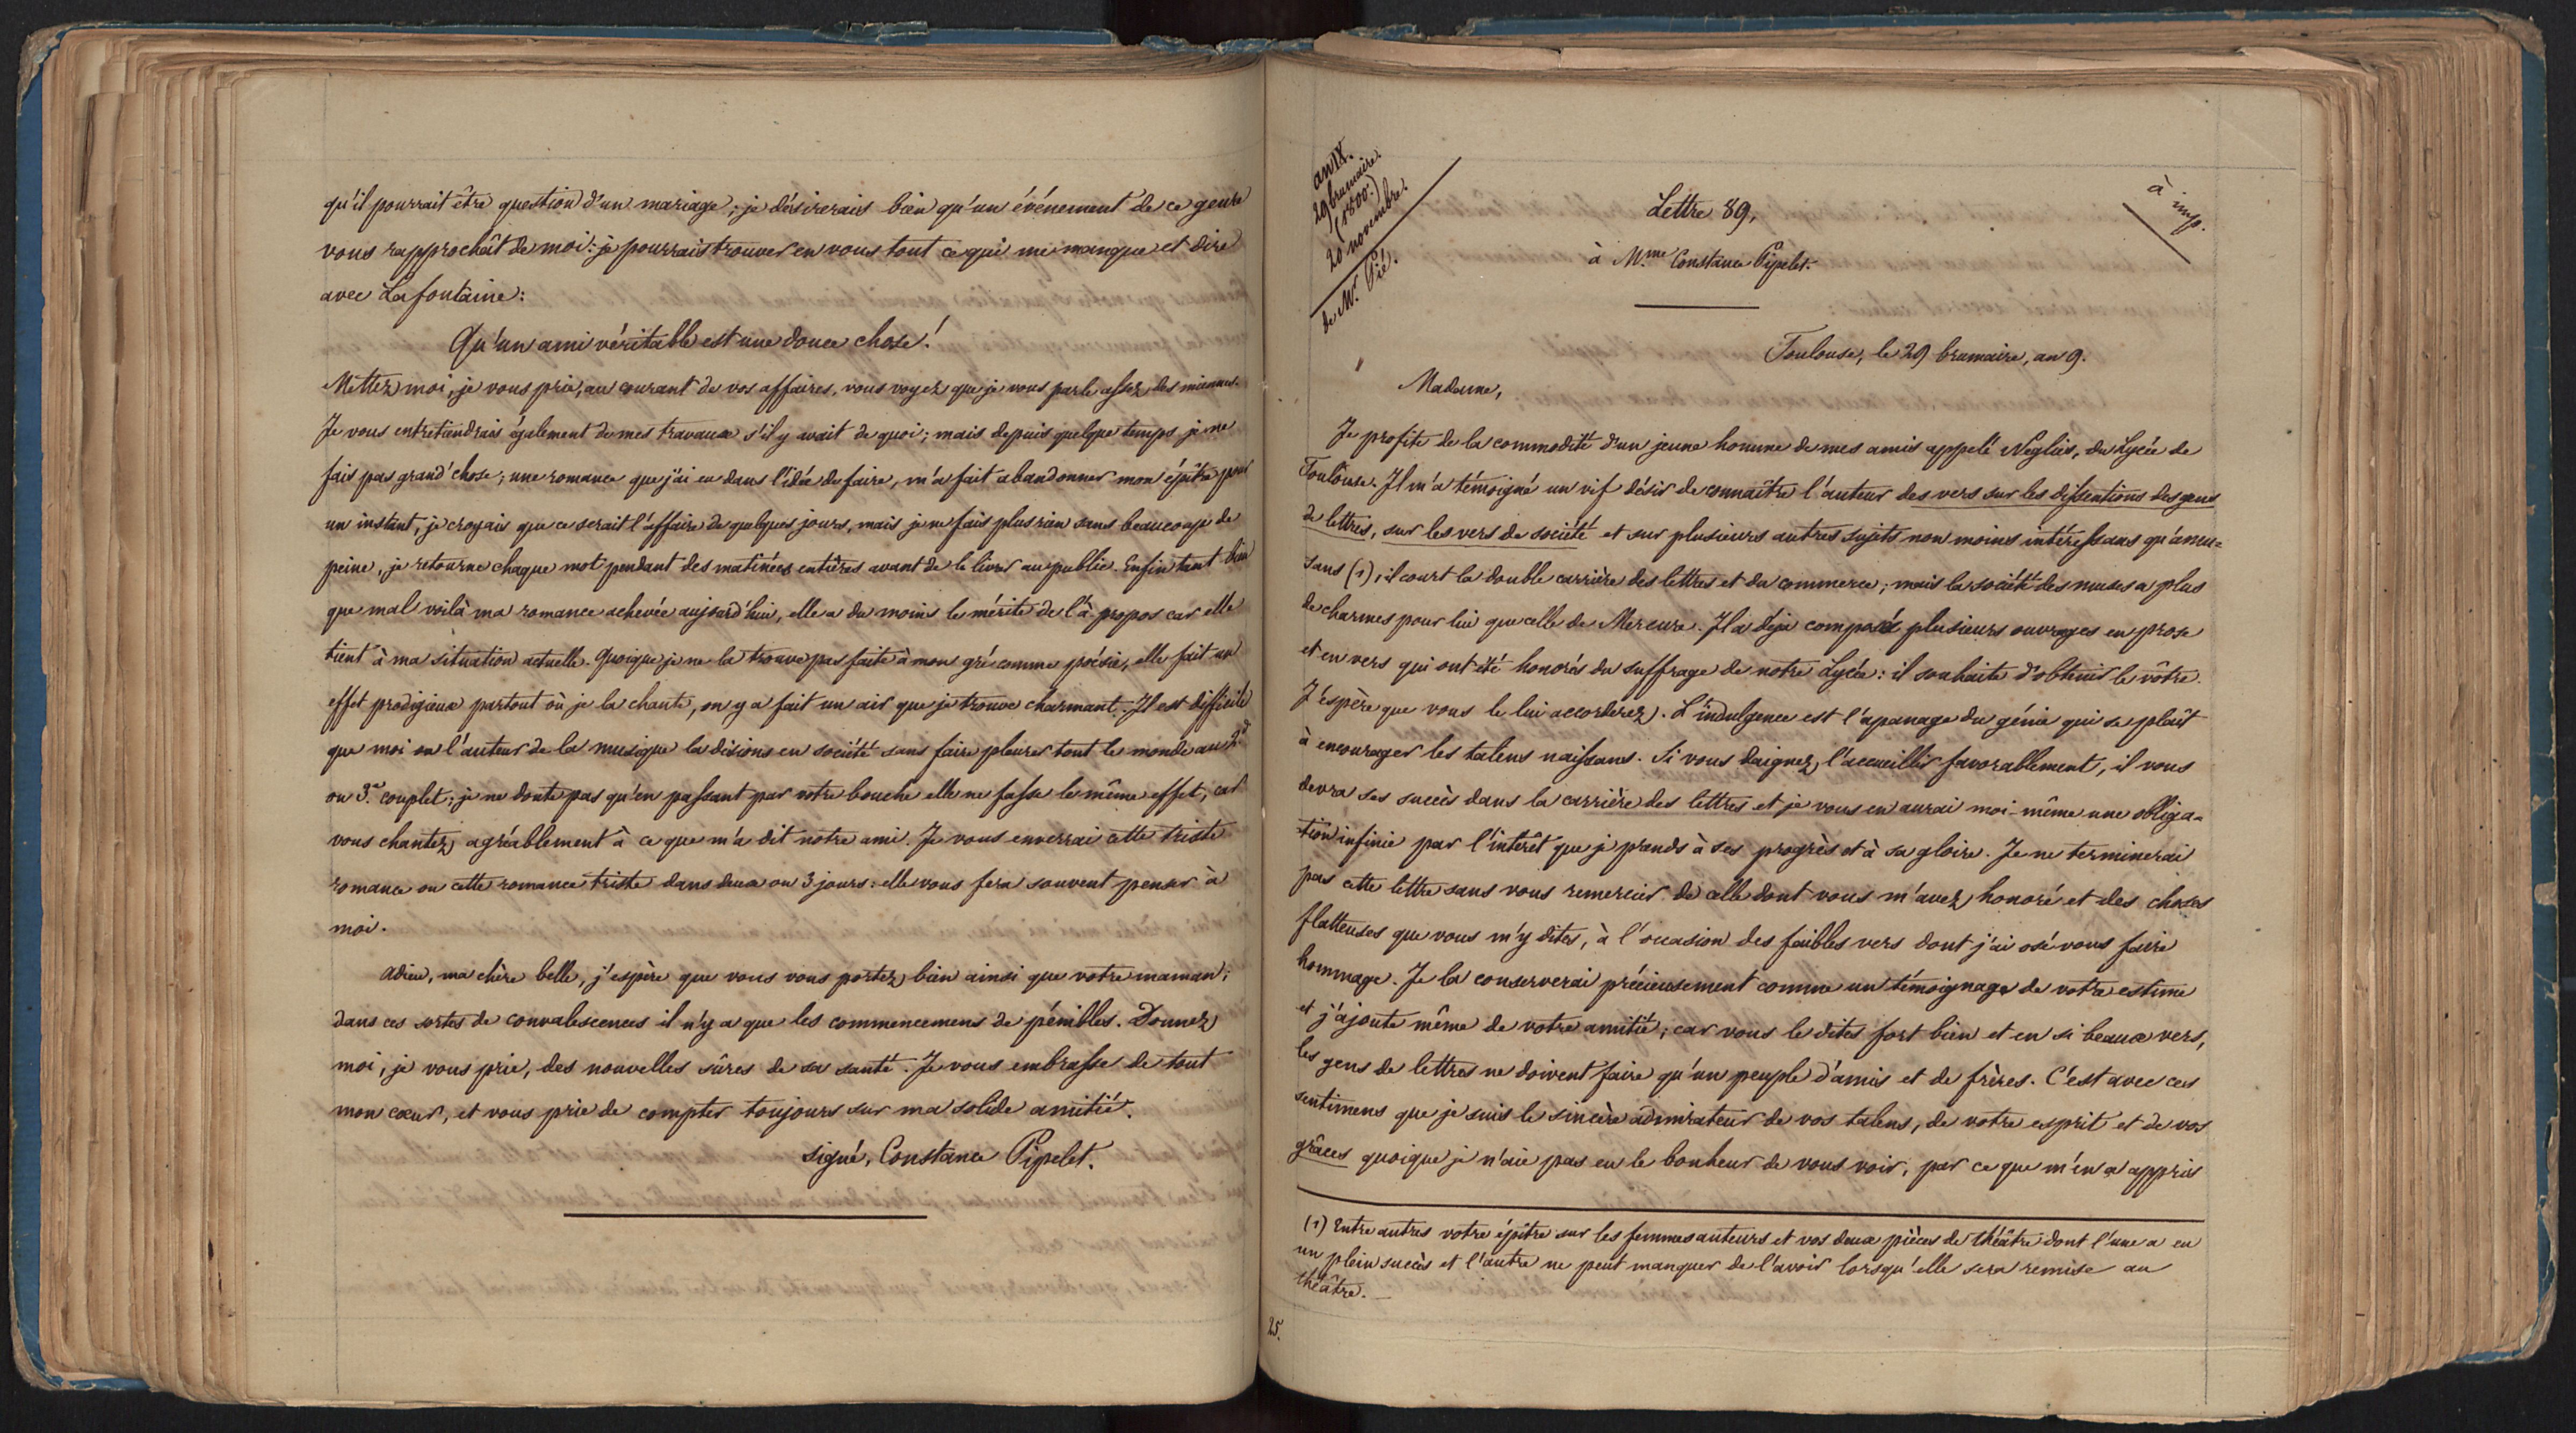 qu'il pourrait être question d'un mariage; je désirerais bien qu'un événement de ce genre
vous rapprochât de moi: je pourrais trouver en vous tout ce qui me manque et dire
avec Lafontaine:
Qu'un ami véritable est une douce chose!
Mettez moi, je vous prie, au courant de vos affaires, vous voyez que je vous parle assez des miennes.
Je vous entretiendrais également de mes travaux s'il y avait de quoi; mais depuis quelque temps je ne
fais pas grand'chose; une romance que j'ai eu dans l'idée de faire, m'a fait abandonner mon épitre pour
un instant, je croyais que ce serait l'affaire de quelques jours, mais je ne fais plus rien sans beaucoup de
peine, je retourne chaque mot pendant des matinées entières avant de le livrer au public. Enfin tant bien
que mal voilà ma romance achevée aujourd'hui, elle a du moins le mérite de l'à propos car elle
tient à ma situation actuelle. Quoique je ne la trouve pas faite à mon gré comme poésie, elle fait un
effet prodigieux partout où je la chante, on y a fait un air que je trouve charmant. Il est difficile
que moi ou l'auteur de la musique la disions en société sans faire pleurer tout le monde au 2d
ou 3e couplet; je ne doute pas qu'en passant par votre bouche elle ne fasse le même effet, car
vous chantez agréablement à ce que m'a dit notre ami. Je vous enverrai cette triste
romance ou cette romance triste dans deux ou 3 jours: elle vous fera souvent penser à
moi.
Adieu, ma chère belle, j'espère que vous vous portez bien ainsi que votre maman;
dans ces sortes de convalescences il n'y a que les commencemens de pénibles. Donnez
moi, je vous prie, des nouvelles sûres de sa santé. Je vous embrasse de tout
mon cœur, et vous prie de compter toujours sur ma solide amitié.
signé, Constance Pipelet.
an IX.
29 brumaire.
(1800.)
20 novembre.
de Mr. Pié.
à imp.
Lettre 89,
à Mme Constance Pipelet.
Toulouse, le 29 brumaire, an 9.
Madame,
Je profite de la commodité d'un jeune homme de mes amis appelé du Lycée de
Toulouse. Il m'a témoigné un vif désir de connaître l'auteur des vers sur les dissentions des gens
de lettres, sur les vers de société et sur plusieurs autres sujets non moins intéressans qu'amu=
sans (1), il court la double carrière des lettres et du commerce; mais la société des muses a plus
de charmes pour lui que celle de Mercure. Il a déja composé plusieurs ouvrages en prose
et en vers qui ont été honorés du suffrage de notre Lycée: il souhaite d'obtenir le vôtre.
J'espère que vous le lui accorderez. L'indulgence est l'apanage du génie qui se plaît
à encourager les talens naissans. Si vous daignez l'accueillir favorablement, il vous
devra ses succès dans la carrière des lettres et je vous en aurai moi-même une obliga=
tion infinie par l'intérêt que je prends à ses progrès et à sa gloire. Je ne terminerai
pas cette lettre sans vous remercier de celle dont vous m'avez honoré et des choses
flatteuses que vous m'y dites, à l'occasion des faibles vers dont j'ai osé vous faire
hommage. Je la conserverai précieusement comme un témoignage de votre estime
et j'ajoute même de votre amitié; car vous le dites fort bien et en si beaux vers,
les gens de lettres ne doivent faire qu'un peuple d'amis et de frères. C'est avec ces
sentimens que je suis le sincère admirateur de vos talens, de votre esprit et de vos
grâces quoique je n'aie pas eu le bonheur de vous voir, par ce que m'en a appris
(1) Entre autres votre épitre sur les femmes auteurs et vos deux pièces de théâtre dont l'une a eu
un plein succès et l'autre ne peut manquer de l'avoir lorsqu'elle sera remise au
théâtre.
25.